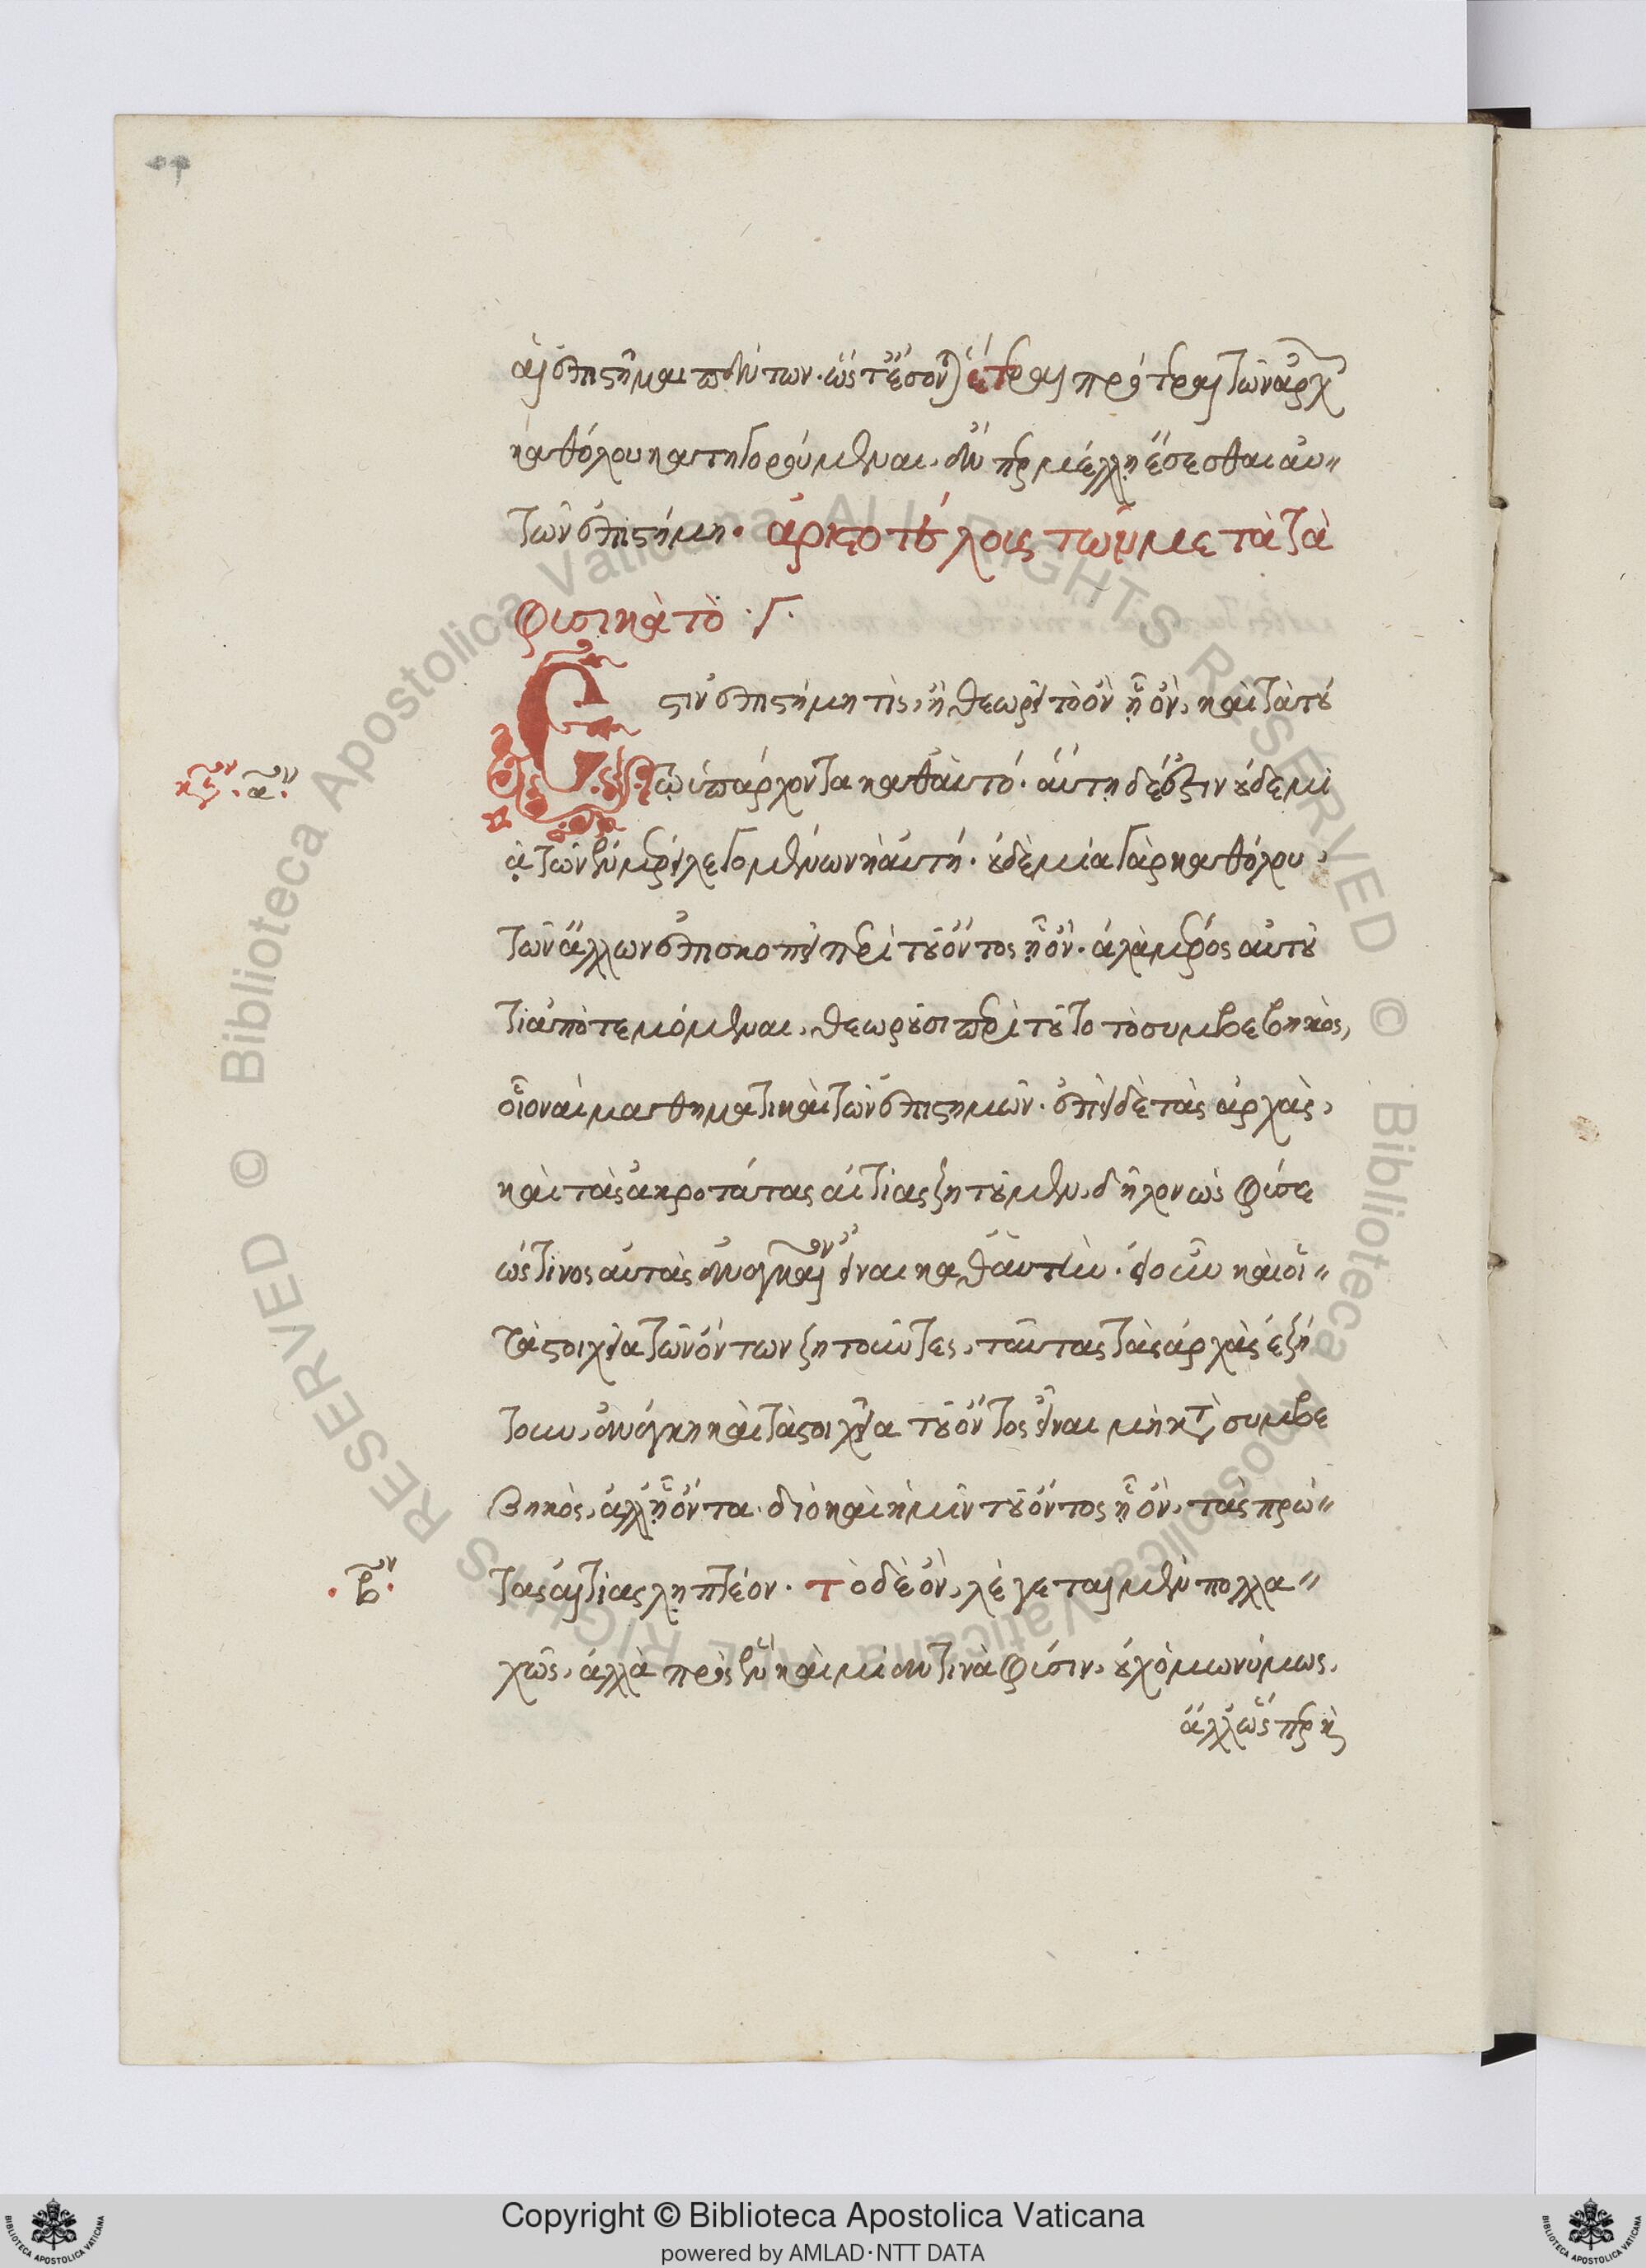 αἱ ἐπιστῆμαι πάντων. ὥς τε ἔσονται ἕτεραι πρότεραι τῶν ἀρχῶν
καθόλου κατηγορούμεναι, ἄν περ μέλλῃ ἔσεσθαι αὐ〃
τῶν ἐπιστήμη. ἀριστοτέλους τῶν μετὰ τὰ
φυσικὰ τὸ ·Γ·
Ἔστιν ἐπιστήμη τὶς, ἣ θεωρεῖ τὸ ὂν ᾗ ὂν, καὶ τὰ τού
τῳ ὑπάρχοντα καθαὑτό. αὕτη δέ ἐστιν οὐδεμι
ᾷ τῶν ἐν μέρει λεγομένων ἡ αὐτή. οὐδεμία γὰρ καθόλου,
τῶν ἄλλων ἐπισκοπεῖ περὶ τοῦ ὄντος ᾗ ὄν. ἀλὰ μέρος αὐτοῦ
τι ἀποτεμόμεναι, θεωροῦσι περὶ τοῦτο τὸ συμβεβηκὸς,
οἷον αἱ μαθηματικαὶ τῶν ἐπιστημῶν. ἐπεὶ δὲ τὰς ἀρχὰς,
καὶ τὰς ἀκροτάτας αἰτίας ζητοῦμεν, δῆλον ὡς φύσε
ώς τινος αὐτὰς ἀναγκαῖον εἶναι καθ' αὑτήν. εἰ οὖν καὶ οἱ〃
τὰ στοιχεῖα τῶν ὄντων ζητοῦντες, ταύτας τὰς ἀρχὰς ἐζή
τουν, ἀνάγκη καὶ τὰ στοιχεῖα τοῦ ὄντος εἶναι μὴ κατὰ συμβε
βηκὸς, ἀλλ' ᾗ ὄντα. διὸ καὶ ἡμῖν τοῦ ὄντος ᾗ ὂν, τὰς πρώ〃
τας αἰτίας ληπτέον. τὸ δὲ ὂν, λέγεται μὲν πολλα〃
χῶς, ἀλλὰ πρὸς ἓν καὶ μίαν τινὰ φύσιν, οὐχ ὁμωνύμως,
ἀλλ' ὥς περ καὶ
κεφ. ·α ον·
·β ον·